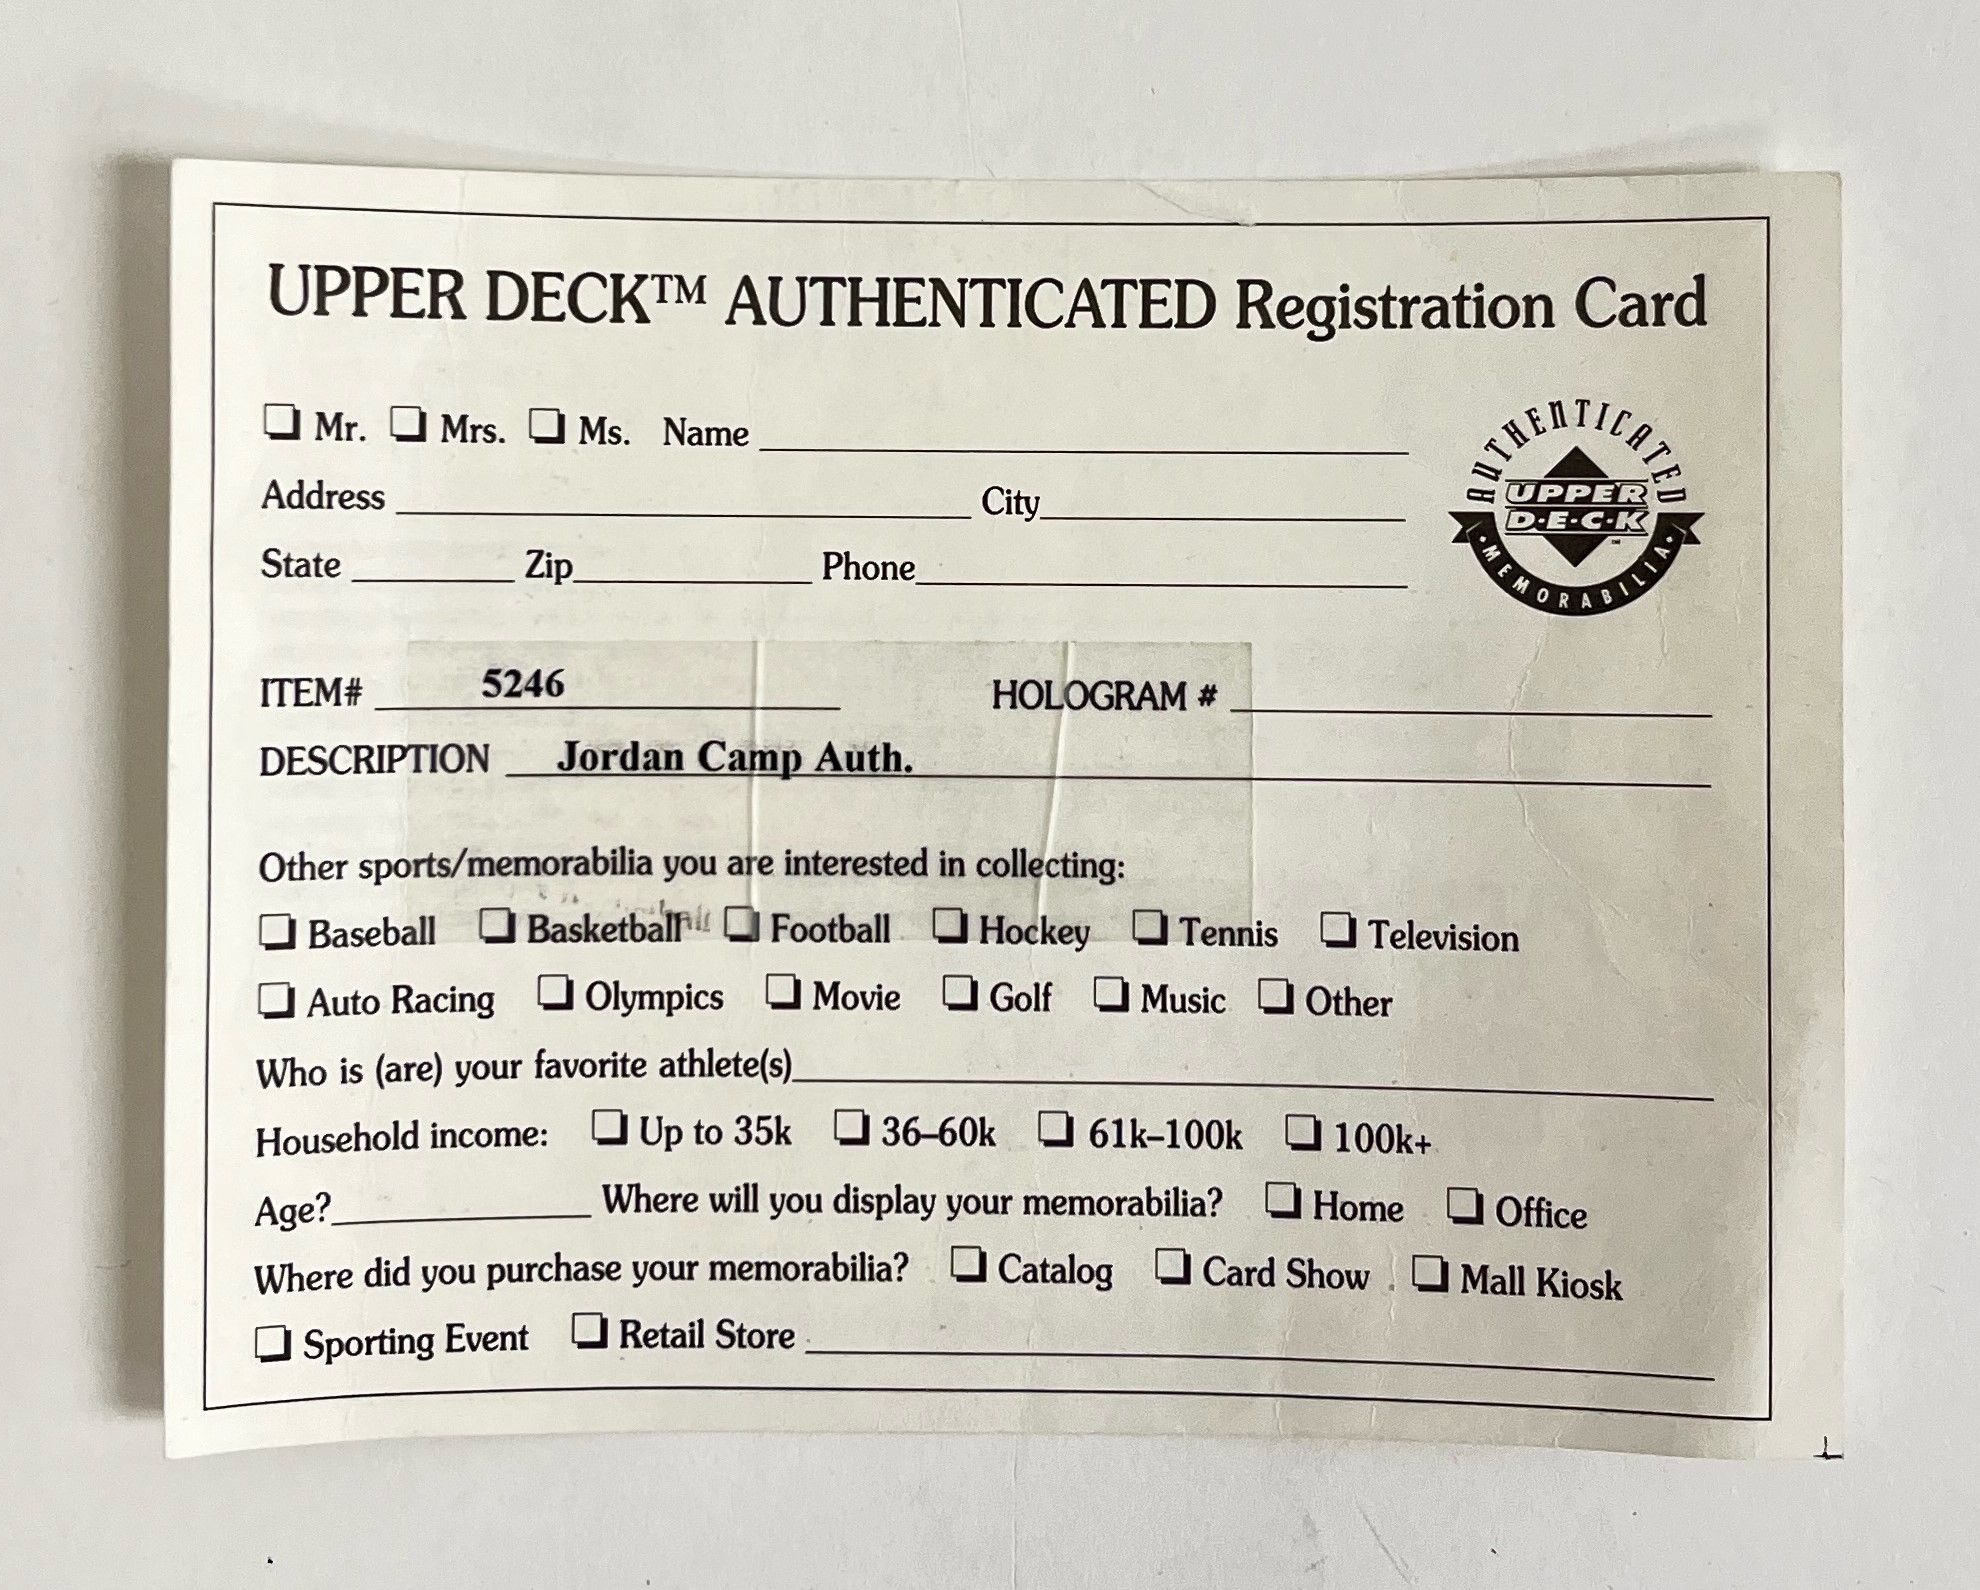 UPPER DECK™ AUTHENTICATED Registration Card
❏ Mr. ❏ Mrs. ❏ Ms. Name
Address City
State Zip Phone
AUTHENTICATED
UPPER
D·E·C·K
™
·MEMORABILIA·
ITEM# 5246 HOLOGRAM #
DESCRIPTION Jordan Camp Auth.
Other sports/memorabilia you are interested in collecting:
❏ Baseball ❏ Basketball ❏ Football ❏ Hockey ❏ Tennis ❏ Television
❏ Auto Racing ❏ Olympics ❏ Movie ❏ Golf ❏ Music ❏ Other
Who is (are) your favorite athlete(s)
Household income: ❏ Up to 35k ❏ 36–60k ❏ 61k–100k ❏ 100k+
Age? Where will you display your memorabilia? ❏ Home ❏ Office
Where did you purchase your memorabilia? ❏ Catalog ❏ Card Show ❏ Mall Kiosk
❏ Sporting Event ❏ Retail Store